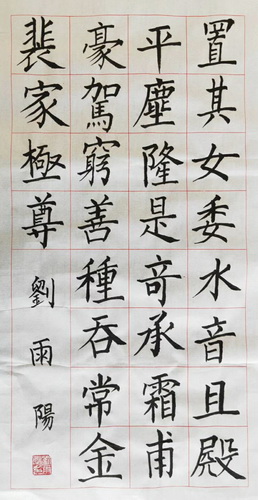 置其女委水音且殿
平塵隆是奇承霜甫
豪駕窮善種吞常金
裴家極尊
劉雨陽